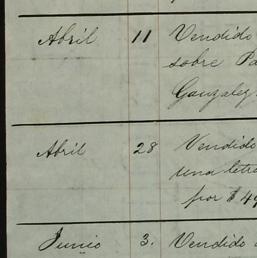 Abril 11 Vendido
sobre
Gonzalez
Abril 28 Vendido
una letra
por $ 49
Junio 3. Vendido